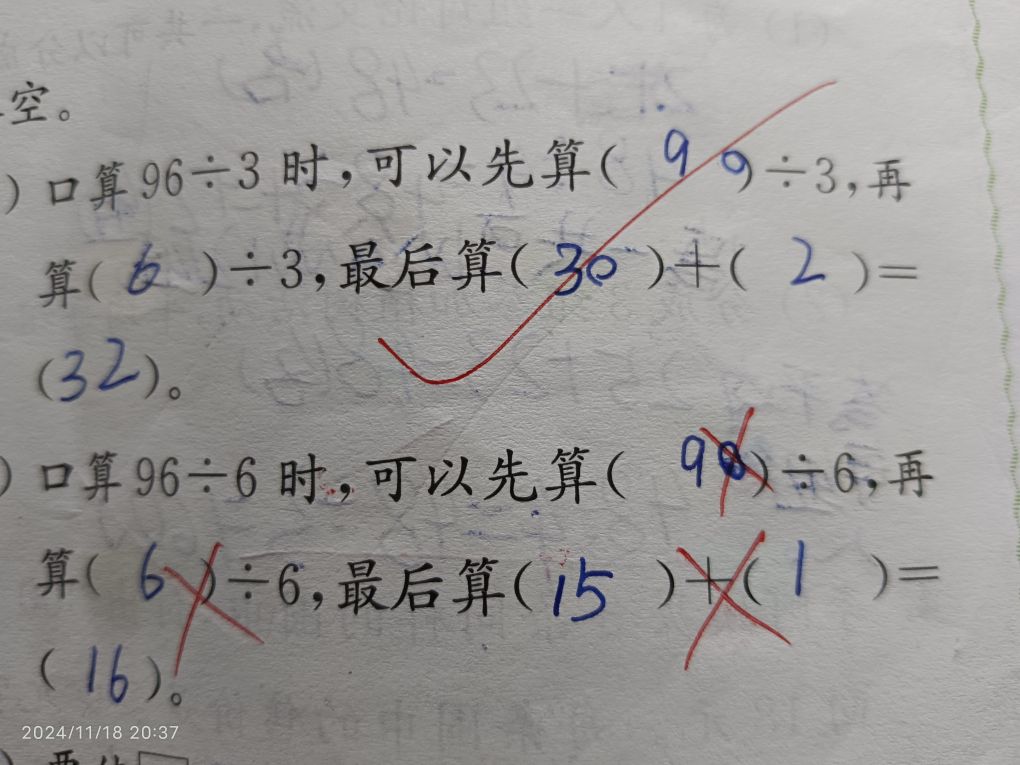 空。
)口算96÷3时,可以先算( 90)÷3,再
算( 6 )÷3,最后算( 30 )+( 2 )=
(32)。
)口算96÷6时,可以先算( 90)÷6,再
算( 6 )÷6,最后算( 15 )+( 1 )=
( 16 )。
2024/11/18 20:37